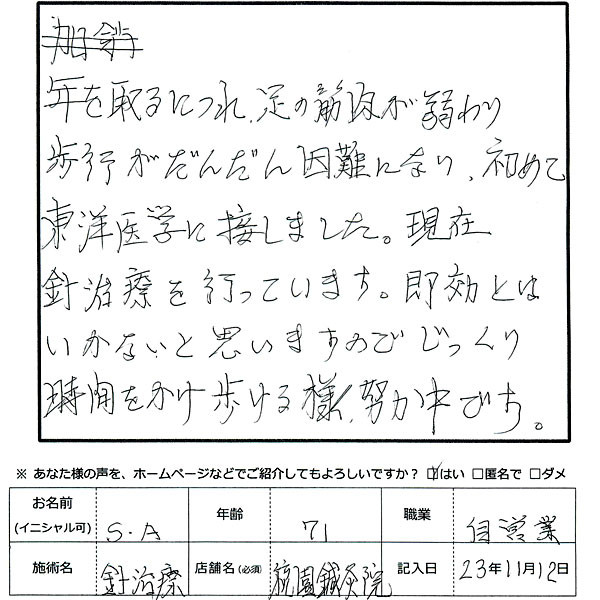 年を取るにつれ、足の筋肉が弱わり
歩行がだんだん困難になり、初めて
東洋医学に接しました。現在
針治療を行っています。即効とは
いかないと思いますのでじっくり
時間をかけ歩ける様、努力中です。
※ あなた様の声を、ホームページなどでご紹介してもよろしいですか? ☑はい □匿名で □ダメ
お名前(イニシャル可) S.A 年齢 71 職業 自営業
施術名 針治療 店舗名(必須) 桃園鍼灸院 記入日 23年11月12日